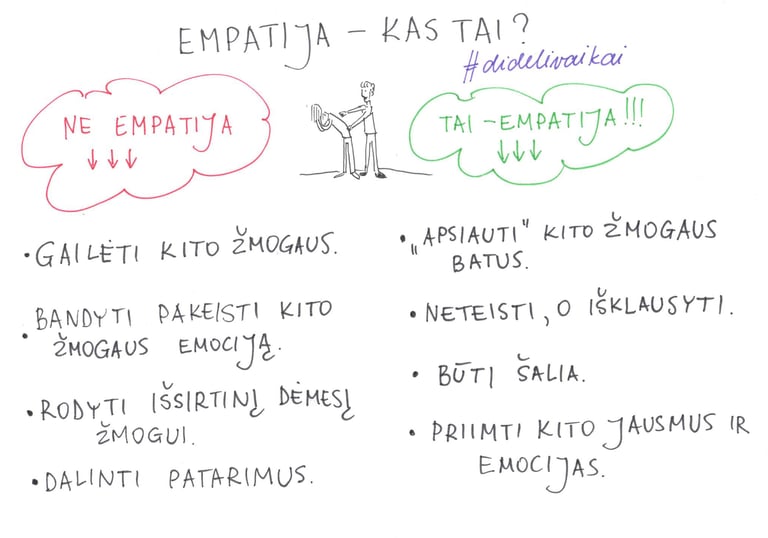 EMPATIJA – KAS TAI?
#didelivaikai
NE EMPATIJA
↓↓↓
• GAILĖTI KITO ŽMOGAUS.
• BANDYTI PAKEISTI KITO
ŽMOGAUS EMOCIJĄ.
• RODYTI IŠSIRTINĮ DĖMESĮ
ŽMOGUI.
• DALINTI PATARIMUS.
TAI – EMPATIJA!!!
↓↓↓
• „APSIAUTI" KITO ŽMOGAUS
BATUS.
• NETEISTI, O IŠKLAUSYTI.
• BŪTI ŠALIA.
• PRIIMTI KITO JAUSMUS IR
EMOCIJAS.